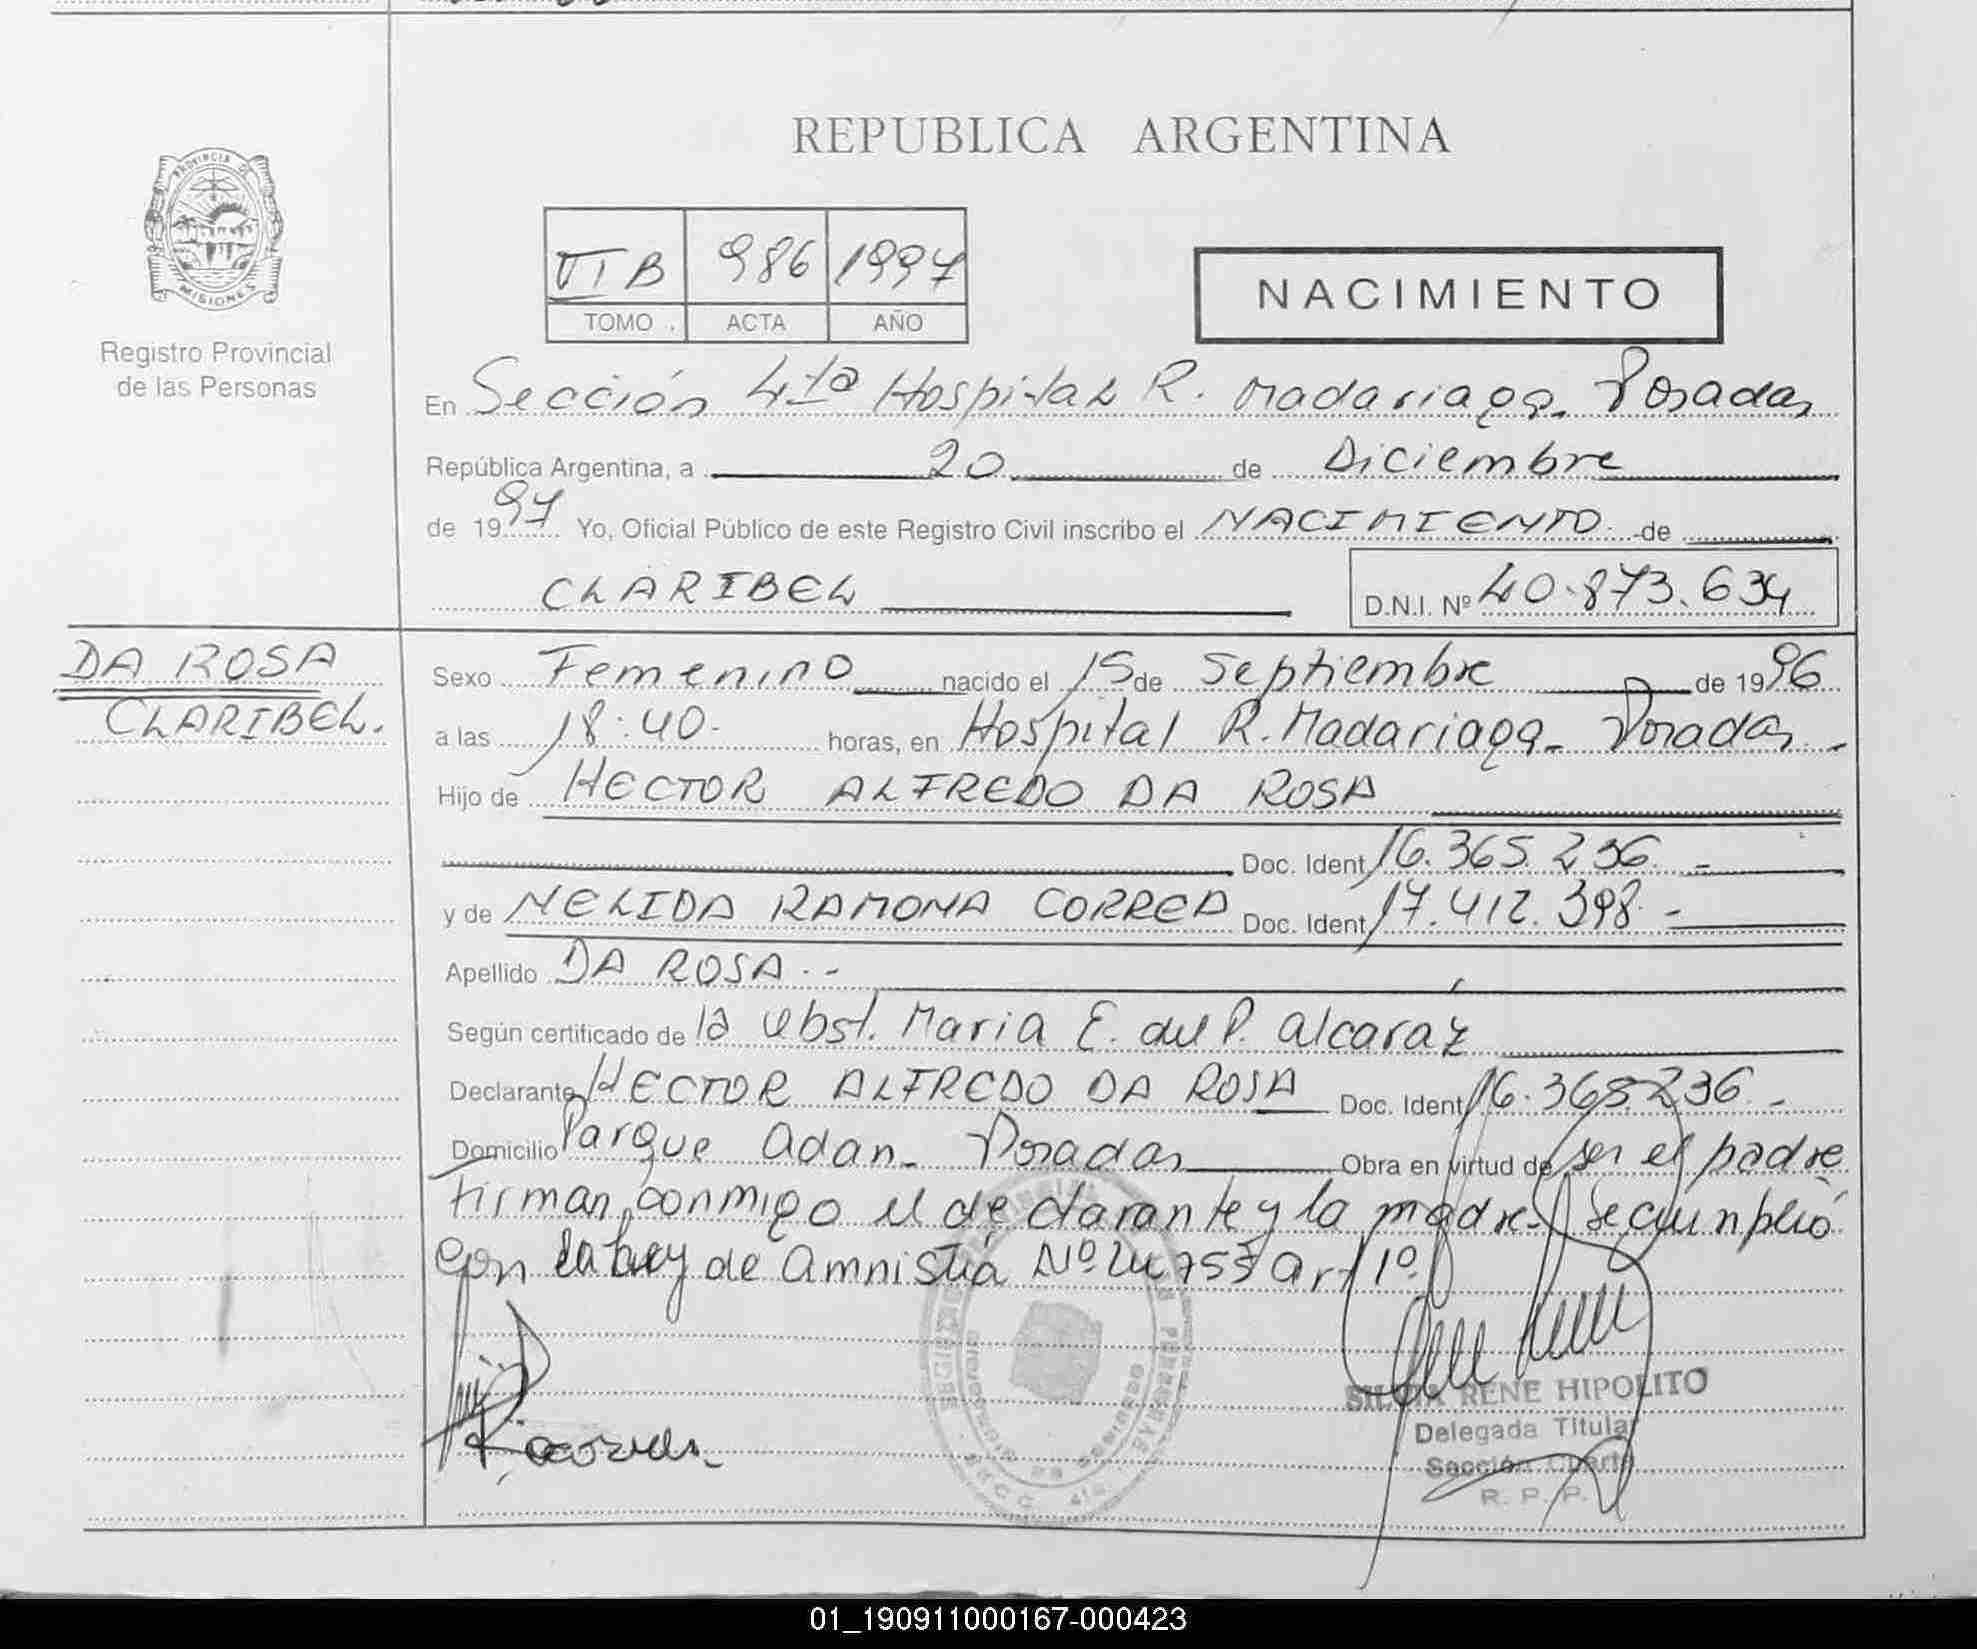 REPUBLICA ARGENTINA
PROVINCIA DE
MISIONES
Registro Provincial
de las Personas
VI B 986 1997
TOMO ACTA AÑO
NACIMIENTO
En Sección 4ta Hospital R. Madariaga. Posadas
República Argentina, a 20 de Diciembre
de 1997 Yo, Oficial Público de este Registro Civil inscribo el NACIMIENTO de
CLARIBEL D.N.I. Nº 40.873.634
DA ROSA
CLARIBEL.
Sexo Femenino nacido el 15 de Septiembre de 1996
a las 18:40 horas, en Hospital R. Madariaga - Posadas -
Hijo de HECTOR ALFREDO DA ROSA
Doc. Ident 16.365.236. -
y de NELIDA RAMONA CORREA Doc. Ident 17.412.398. -
Apellido DA ROSA. -
Según certificado de la Obst. Maria E. del P. Alcaraz
Declarante HECTOR ALFREDO DA ROSA Doc. Ident 16.365.236 -
Domicilio Parque Adan - Posadas Obra en virtud de ser el padre
Firman conmigo el declarante y la madre - Se cumplió
con la Ley de Amnistia Nº 24755 art 1º.
SILVIA RENE HIPOLITO
Delegada Titular
Sección Cuarta
R. P. P.
01_190911000167-000423